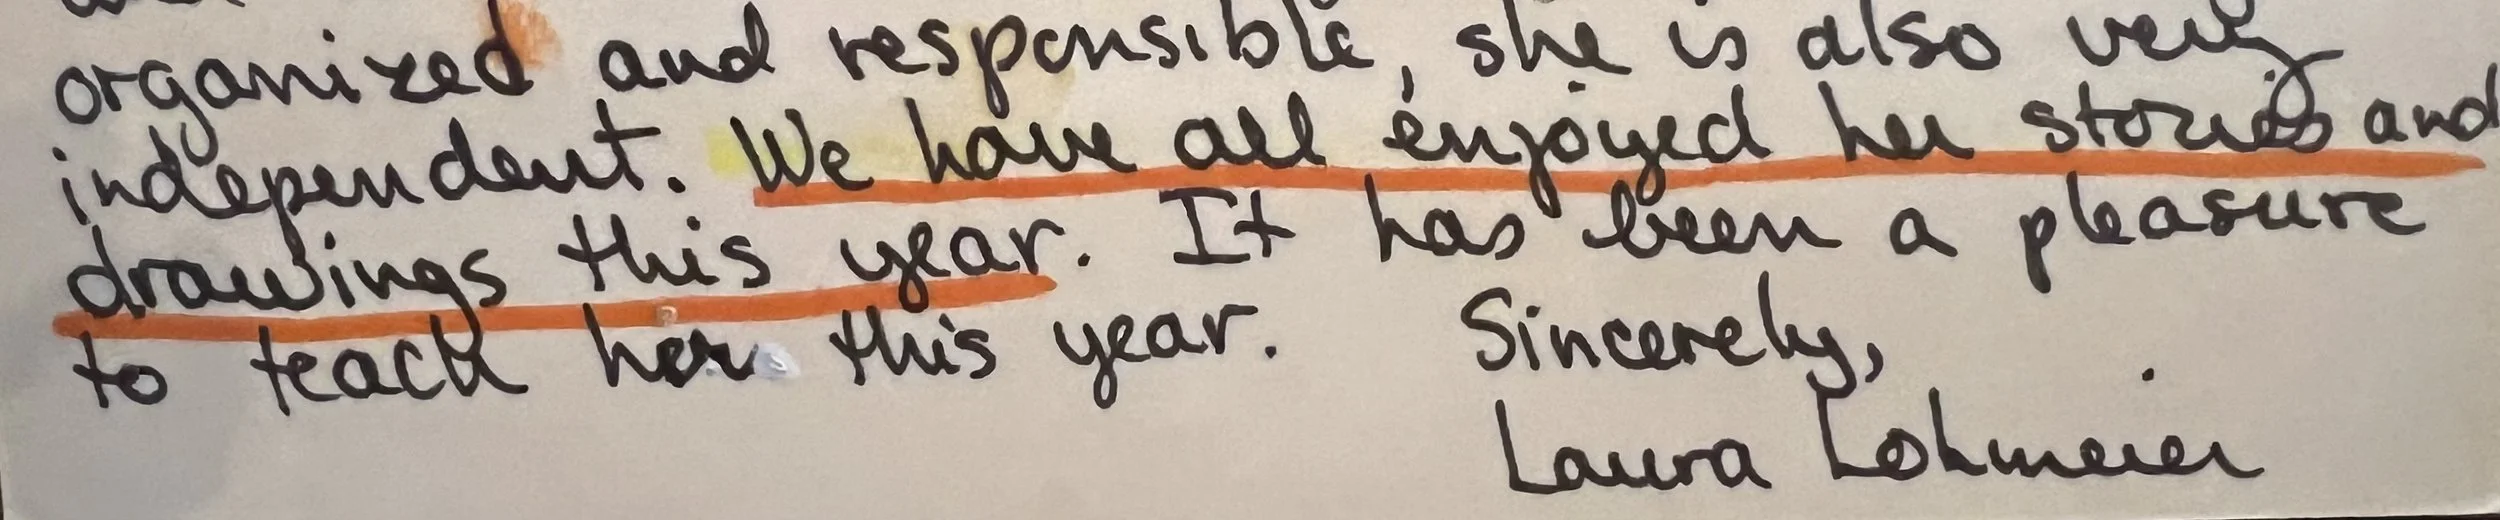 organized and responsible, she is also very
independent. We have all enjoyed her stories and
drawings this year. It has been a pleasure
to teach her this year. Sincerely,
Laura Lohmeier